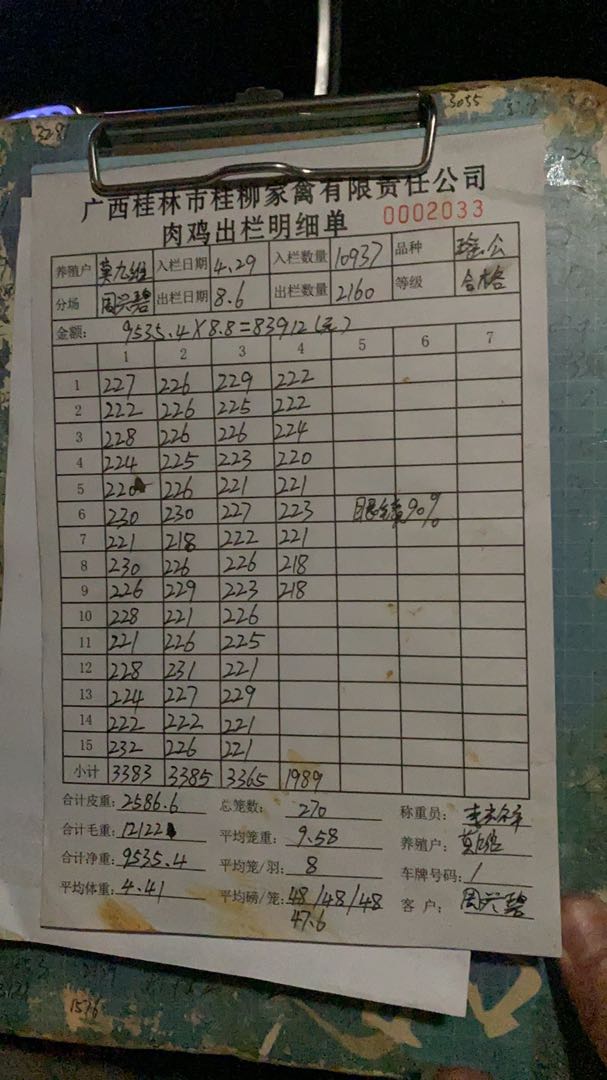 3055
328
广西桂林市桂柳家禽有限责任公司
肉鸡出栏明细单 0002033
养殖户 莫九维 入栏日期 4.29 入栏数量 10937 品种 瑶公
分场 周兴碧 出栏日期 8.6 出栏数量 2160 等级 合格
金额: 9535.4×8.8=83912(元)
1 2 3 4 5 6 7
1 227 226 229 222
2 222 226 225 222
3 228 226 226 224
4 224 225 223 220
5 220 226 221 221
6 230 230 227 223 90%
7 221 218 222 221
8 230 226 226 218
9 226 229 223 218
10 228 221 226
11 221 226 225
12 228 231 221
13 224 227 229
14 222 222 221
15 232 226 221
小计 3383 3385 3365 1989
合计皮重: 2586.6 总笼数: 270 称重员:
合计毛重: 12122 平均笼重: 9.58 养殖户: 莫九维
合计净重: 9535.4 平均笼/羽: 8 车牌号码: /
平均体重: 4.41 平均磅/笼: 48/48/48 客户: 周兴碧
47.6
1576